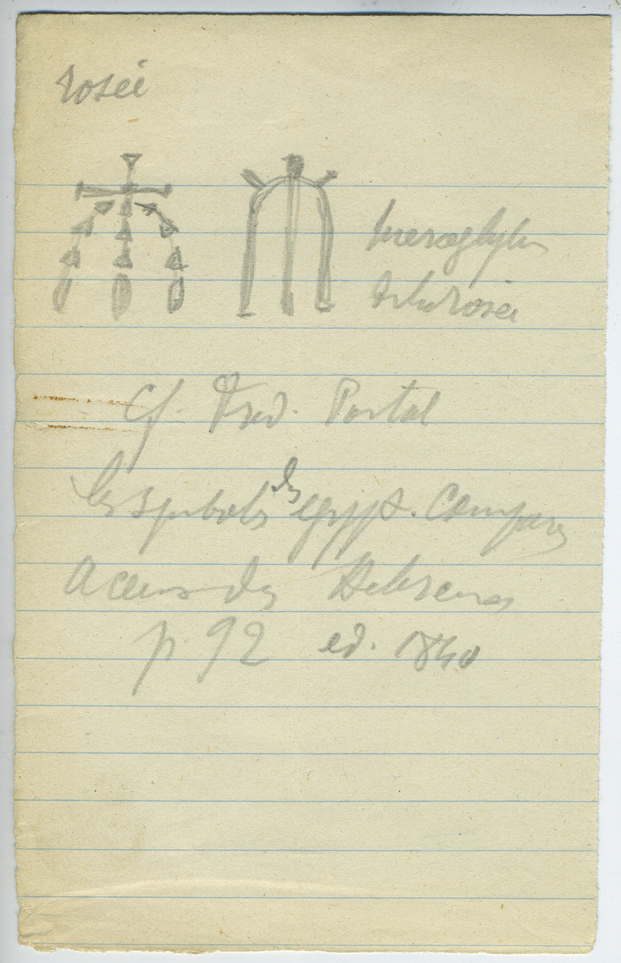 rosée
hieroglyphe
de la rosée
Cf. Fred. Portal
les symboles des egypt. Compares
a ceux des Hebreux
p. 92 ed. 1840